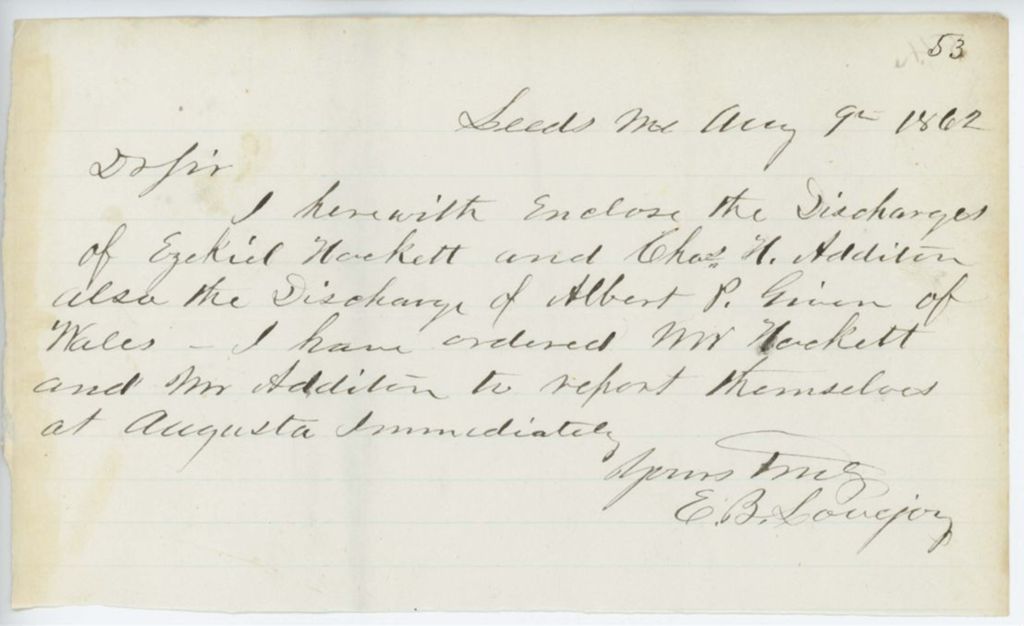 53
Leeds Me Aug 9th 1862
Dr Sir
I herewith Enclose the Discharges
of Ezekiel Hackett and Chas H. Additon
also the Discharge of Albert P. Given of
Wales - I have ordered Mr Hackett
and Mr Additon to report themselves
at Augusta Immediately
Yours Truly
E. B. Lovejoy